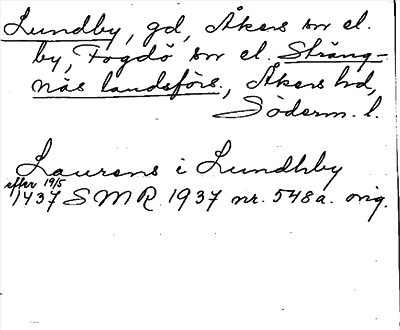 Lundby, gd, Åkers sn el.
by, Fogdö sn el. Sträng-
näs landsförs., Åkers hd,
Söderm. l.
Laurens i Lundhby
efter 19/5
1437 SMR 1937 nr. 548a. orig.